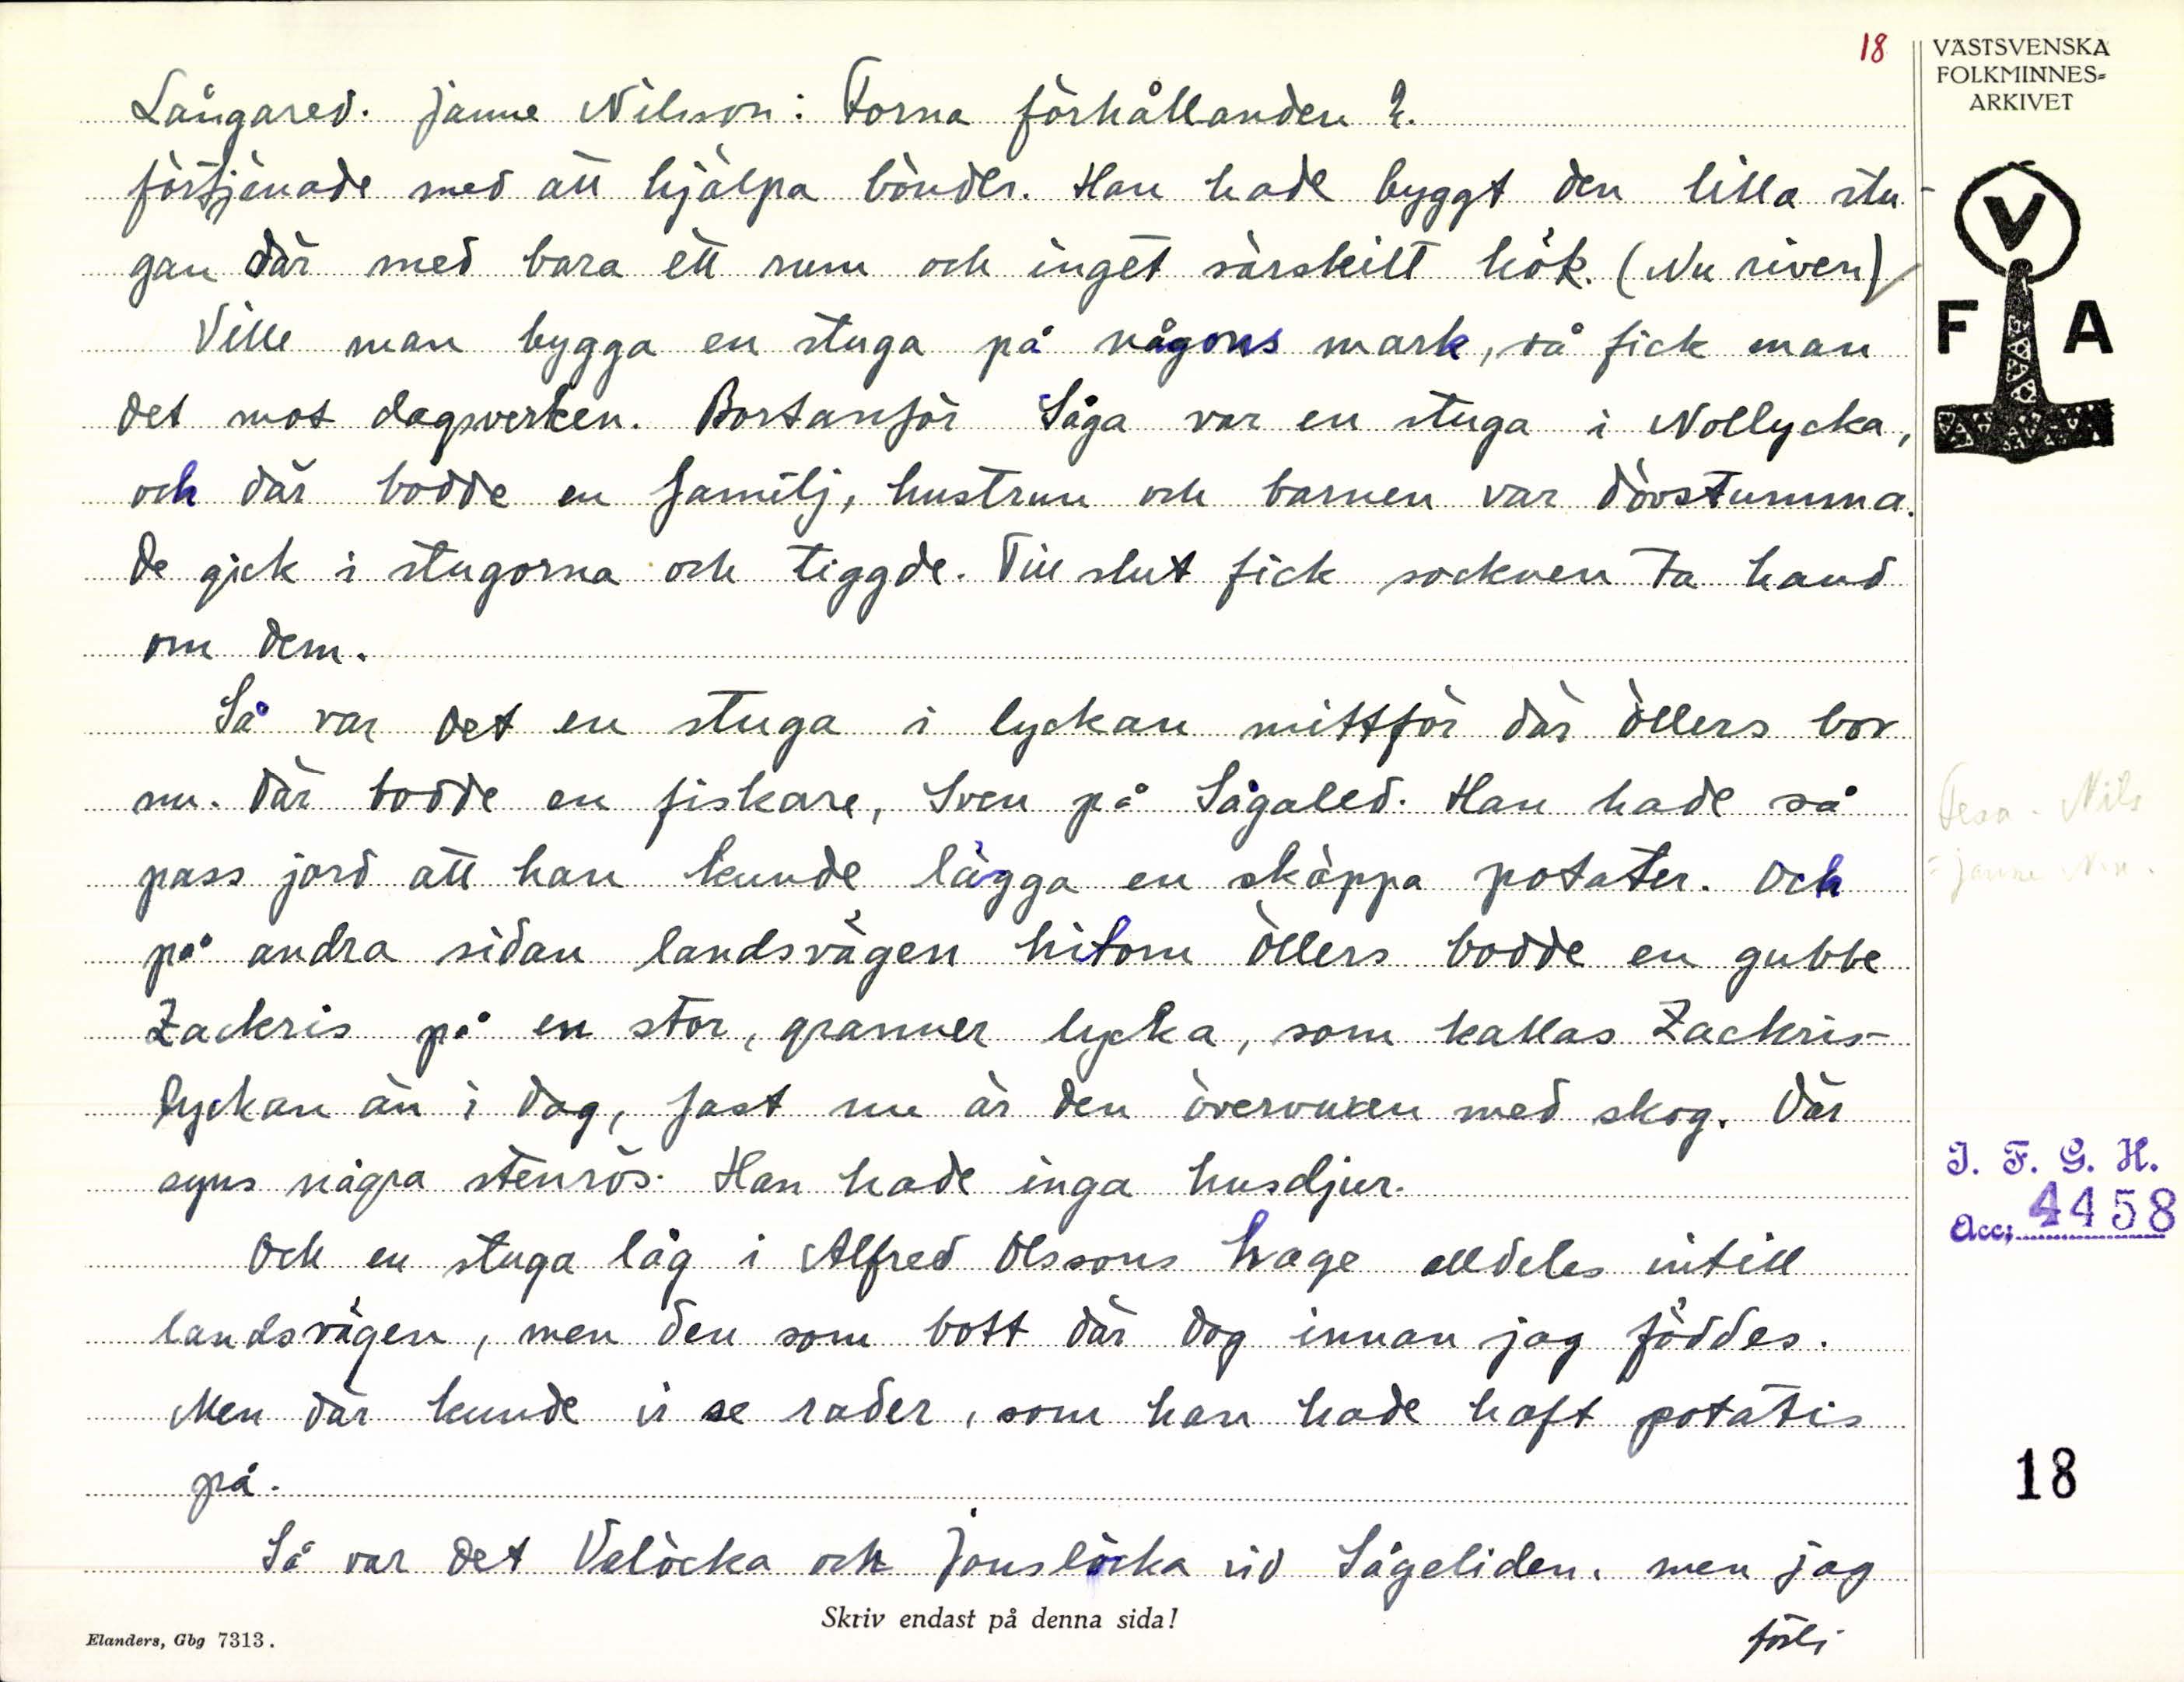 18
VÄSTSVENSKA
FOLKMINNES=
ARKIVET
Långared. Janne Nilsson: Forna förhållanden 2.
förtjänade med att hjälpa bönder. Han hade byggt den lilla stu-
gan där med bara ett rum och inget särskilt kök. (Nu riven)
Ville man bygga en stuga på någons mark, så fick man
det mot dagsverken. Bortanför Såga var en stuga i Nollycka,
och där bodde en familj, hustrun och barnen var dövstumma.
De gick i stugorna och tiggde. Till slut fick socknen ta hand
om dem.
Så var det en stuga i lyckan mittför där Öllers bor
nu. Där bodde en fiskare, Sven på Sågaled. Han hade så
pass jord att han kunde lägga en skäppa potater. Och
på andra sidan landsvägen hitom Öllers bodde en gubbe
Zackris på en stor, granner lycka, som kallas Zackris-
lyckan än i dag, fast nu är den övervuxen med skog. Där
syns några stenrös. Han hade inga husdjur.
Och en stuga låg i Alfred Olssons hage alldeles intill
landsvägen, men den som bott där dog innan jag föddes.
Men där kunde vi se rader, som han hade haft potatis
på.
Så var det Velöcka och Jonslöcka vid Sågeliden, men jag
V
F A
Nils
Janne
I. F. G. H.
Acc; 4458
18
Skriv endast på denna sida!
Elanders, Gbg 7313.